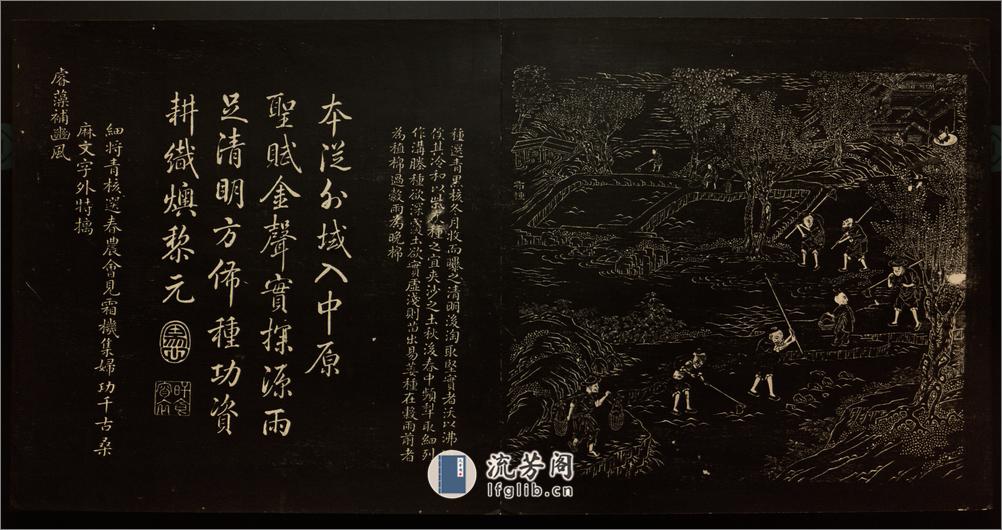 布種
種選青黑核冬月收而曝之清明後淘取堅實者沃以沸
湯俟其冷和以柴灰種之宜夾沙之土秋後春中頻犁取細列
作溝塍種欲深覆土欲實虛淺則苗出易萎種在穀雨前者
為植棉過穀雨為晚棉
本從外域入中原
聖賦金聲實探源雨
足清明方佈種功資
耕織燠黎元
細將青核選春農會見霜機集婦功千古桑
麻文字外特摛
睿藻補豳風
流芳阁
lfglib.cn